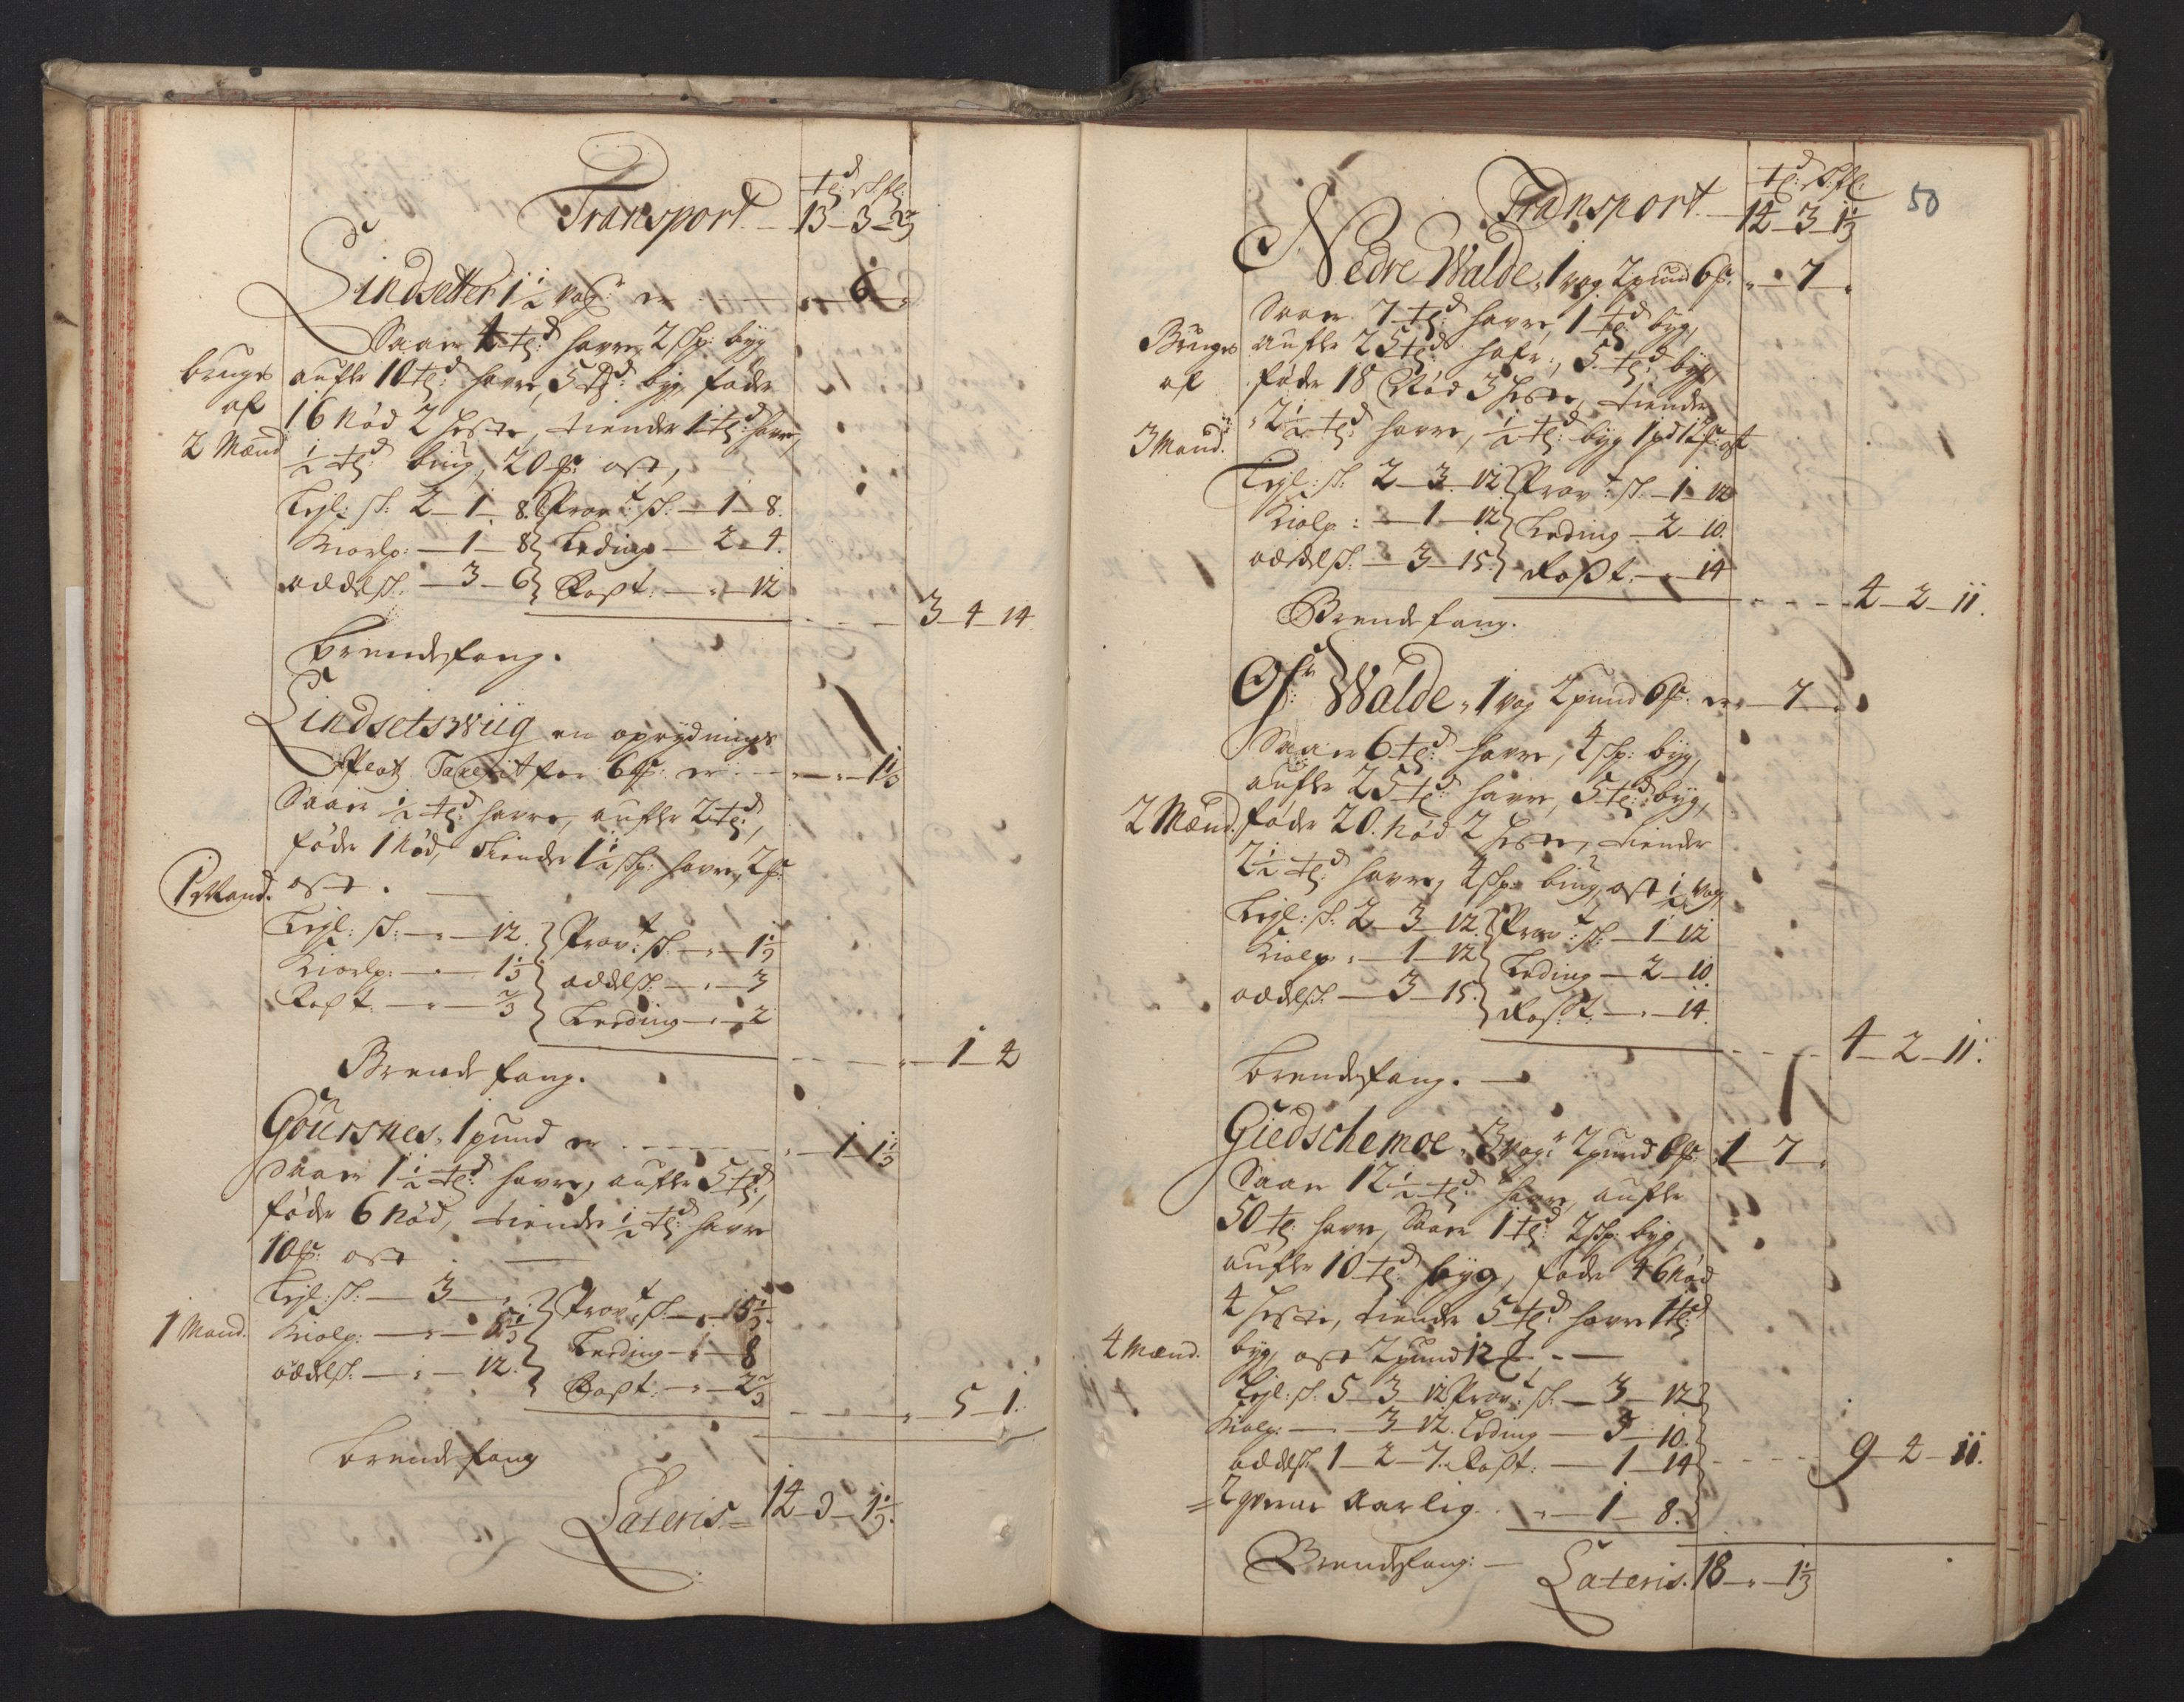 Transport. — 13 — 3 — 2/3
td: sk: fl:
Lindsetter 1 1/2 vog: er — „ — 6 — „
Saaer 4 td: havre, 2 skp: byg
aufler 10 td: havre, 5 td: byg, føder
16 Nød 2 heste, tiender 1 td: havre,
1/2 td: biug, 20 ℔: ost,
brugs
af
2 Mænd
Lejl: sk: 2 — 1 — 8. Prov:t sk: — 1 — 8.
Kiørlp: — 1 — 8 Leding — 2 — 4.
oddelsk: — 3 — 6 Roßt: — „ — 12
3 — 4 — 14
brendefang.
Lindsetswiig en oprydnings
Plotz Taxerit for 6 ℔: er — „ — „ — 1 1/3
Saaer 1/2 td: havre, aufler 2 td:,
føder 1 Nød, tiender 1 1/2 skp: havre, 2 ℔:
ost.
1 Mand.
Lejl: sk: — „ — 12. Prov:t sk: — „ — 1 1/3
Kiørlp: — „ — 1 1/3 oddelsk: — „ — 3
Roßt — „ — 2/3 Leeding — „ — 2
„ — 1 — 4
Brende fang.
Goursnes, 1 pund er — „ — 1 1 1/3
Saaer 1 1/2 td: havre, aufler 5 td:,
føder 6 Nød, tiender 1/2 td: havre
10 ℔: ost
1 Mand.
Lejl: sk: — 3 — „ Prov:t sk: — „ — 15 1/3
Kiølp: — „ — 5 1/3 Leeding — „ — 8
oddelsk: — „ — 12. Roßt: — „ — 2 2/3
„ — 5 — 1.
brende fang
Lateris — 14 — 3 — 1 1/3.
50
td: sk: fl:
Transport. — 14 — 3 — 1 1/3
Nedre Walde, 1 vog 2 pund 6 ℔: „ — 7 — „
Saaer 7 td: havre, 1 td: byg,
aufler 25 td: hafr:, 5 td: byg,
føder 18 Nød 3 heste, tiender
2 1/2 td: havre, 1/2 td: byg 1 pd 12 ℔: ost
Bruges
af
3 Mand.
Lejl: sk: 2 — 3 — 12 Prov:t sk: — 1 — 12
Kiølp: — 1 — 12 Leding — 2 — 10.
oddelsk: — 3 — 15. Roßt: — „ — 14
4 — 2 — 11.
Brende fang.
Ofr: Walde, 1 vog 2 pund 6 ℔: er „ — 7 — „
Saaer 6 td: havre, 4 skp: byg,
aufler 25 td: havre, 5 td: byg,
2 Mænd. føder 20. Nød 2 heste, tiender
2 1/2 td: havre, 4 skp: biug, ost 1/2 vog,
Lejl: sk: 2 — 3 — 12. Prov:t sk: — 1 — 12
Kiølp: — 1 — 12 Leding — 2 — 10.
oddelsk: — 3 — 15. Roßt: — „ — 14.
4 — 2 — 11.
brendefang. —
Giedschemoe, 3 vog: 2 pund 6 ℔: 1 — 7 — „
Saaer 12 1/2 td: havre, aufler
50 td: havre, Saaer 1 td: 2 skp: byg,
aufler 10 td: byg, føder 46 Nød
4 heste, tiender 5 td: havre 1 td:
4 Mænd. byg, ost 2 pund 12 ℔ —
Lejl: sk: 5 — 3 — 12 Prov:t sk: — 3 — 12
Kiølp: — 3 — 12. Leding — 5 — 10.
oddelsk: 1 — 2 — 7. Roßt: — 1 — 14
2 qverne Aarlig. „ — 1 — 8.
9 — 4 — 11.
Brendefang: —
Lateris. 18 — „ — 1 1/3